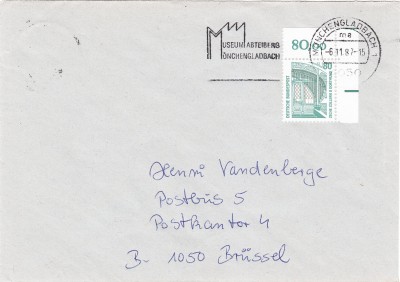 MUSEUM ABTEIBERG
MÖNCHENGLADBACH
MÖNCHENGLADBACH 1
ma
-6.11.87-15
4050
80,00
80
DEUTSCHE BUNDESPOST
Henri Vandenberge
Postbus 5
Postkantor 4
B- 1050 Brüssel